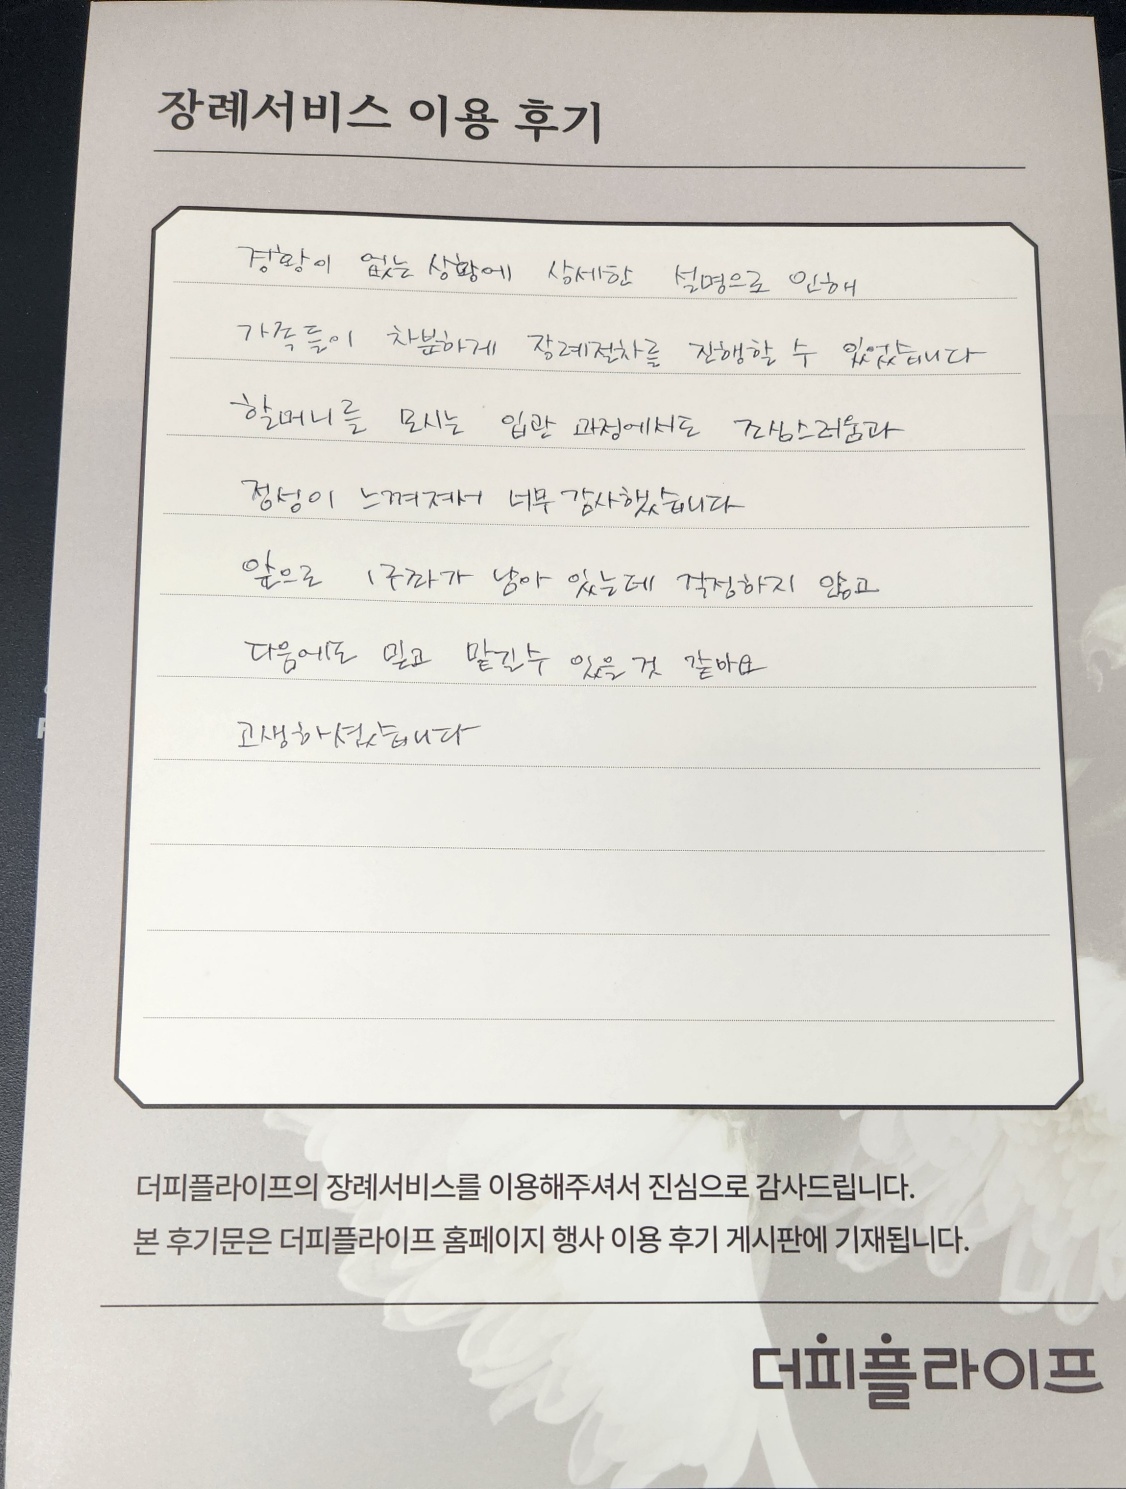 장례서비스 이용 후기
경황이 없는 상황에 상세한 설명으로 인해
가족들이 차분하게 장례절차를 진행할 수 있었습니다
할머니를 모시는 입관 과정에서도 조심스러움과
정성이 느껴져서 너무 감사했습니다
앞으로 1구좌가 남아 있는데 걱정하지 않고
다음에도 믿고 맡길수 있을 것 같아요
고생하셨습니다
더피플라이프의 장례서비스를 이용해주셔서 진심으로 감사드립니다.
본 후기문은 더피플라이프 홈페이지 행사 이용 후기 게시판에 기재됩니다.
더피플라이프